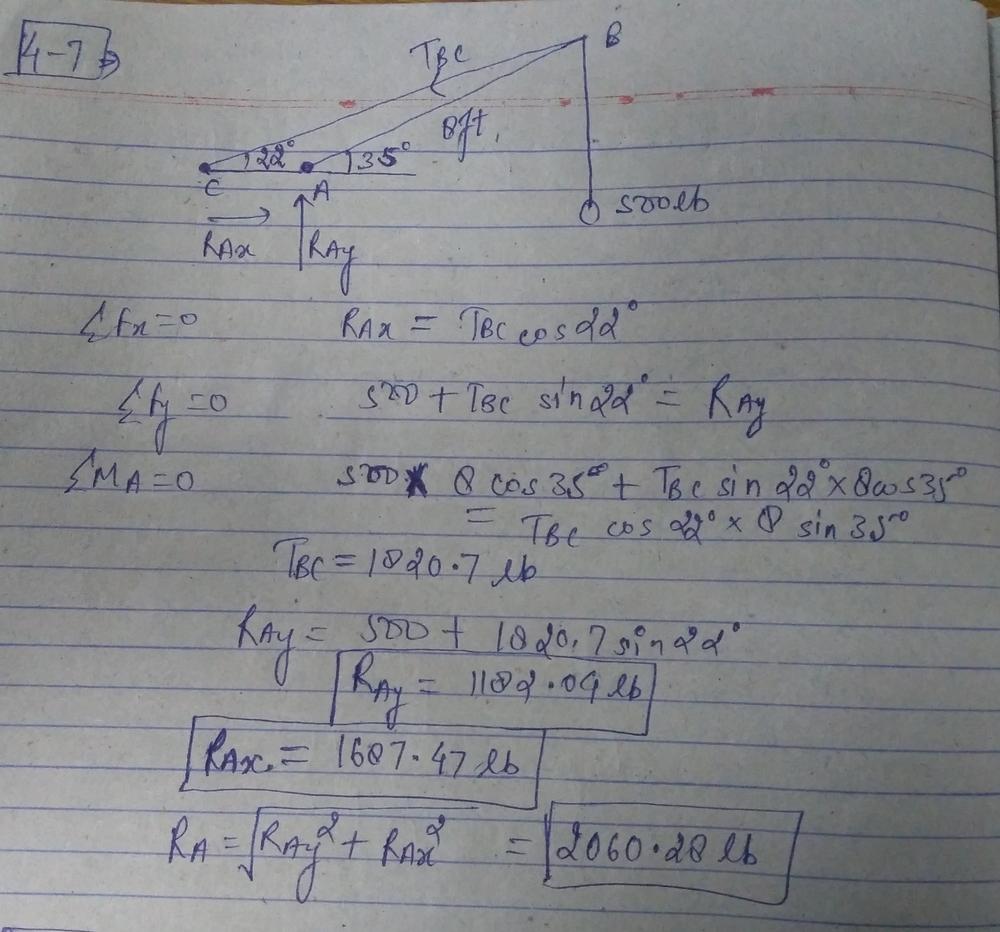 4-7
TBC
B
8ft.
22°
35°
C
A
500lb
RAx
RAy
ΣFx=0 RAx = TBC cos22°
ΣFy=0 500 + TBC sin22° = RAy
ΣMA=0 500 x 8 cos35° + TBC sin22° x 8cos35°
= TBC cos22° x 8 sin35°
TBC = 1820.7 lb
RAy = 500 + 1820.7 sin22°
RAy = 1182.04 lb
RAx = 1687.47 lb
RA = √RAy² + RAx² = 2060.28 lb